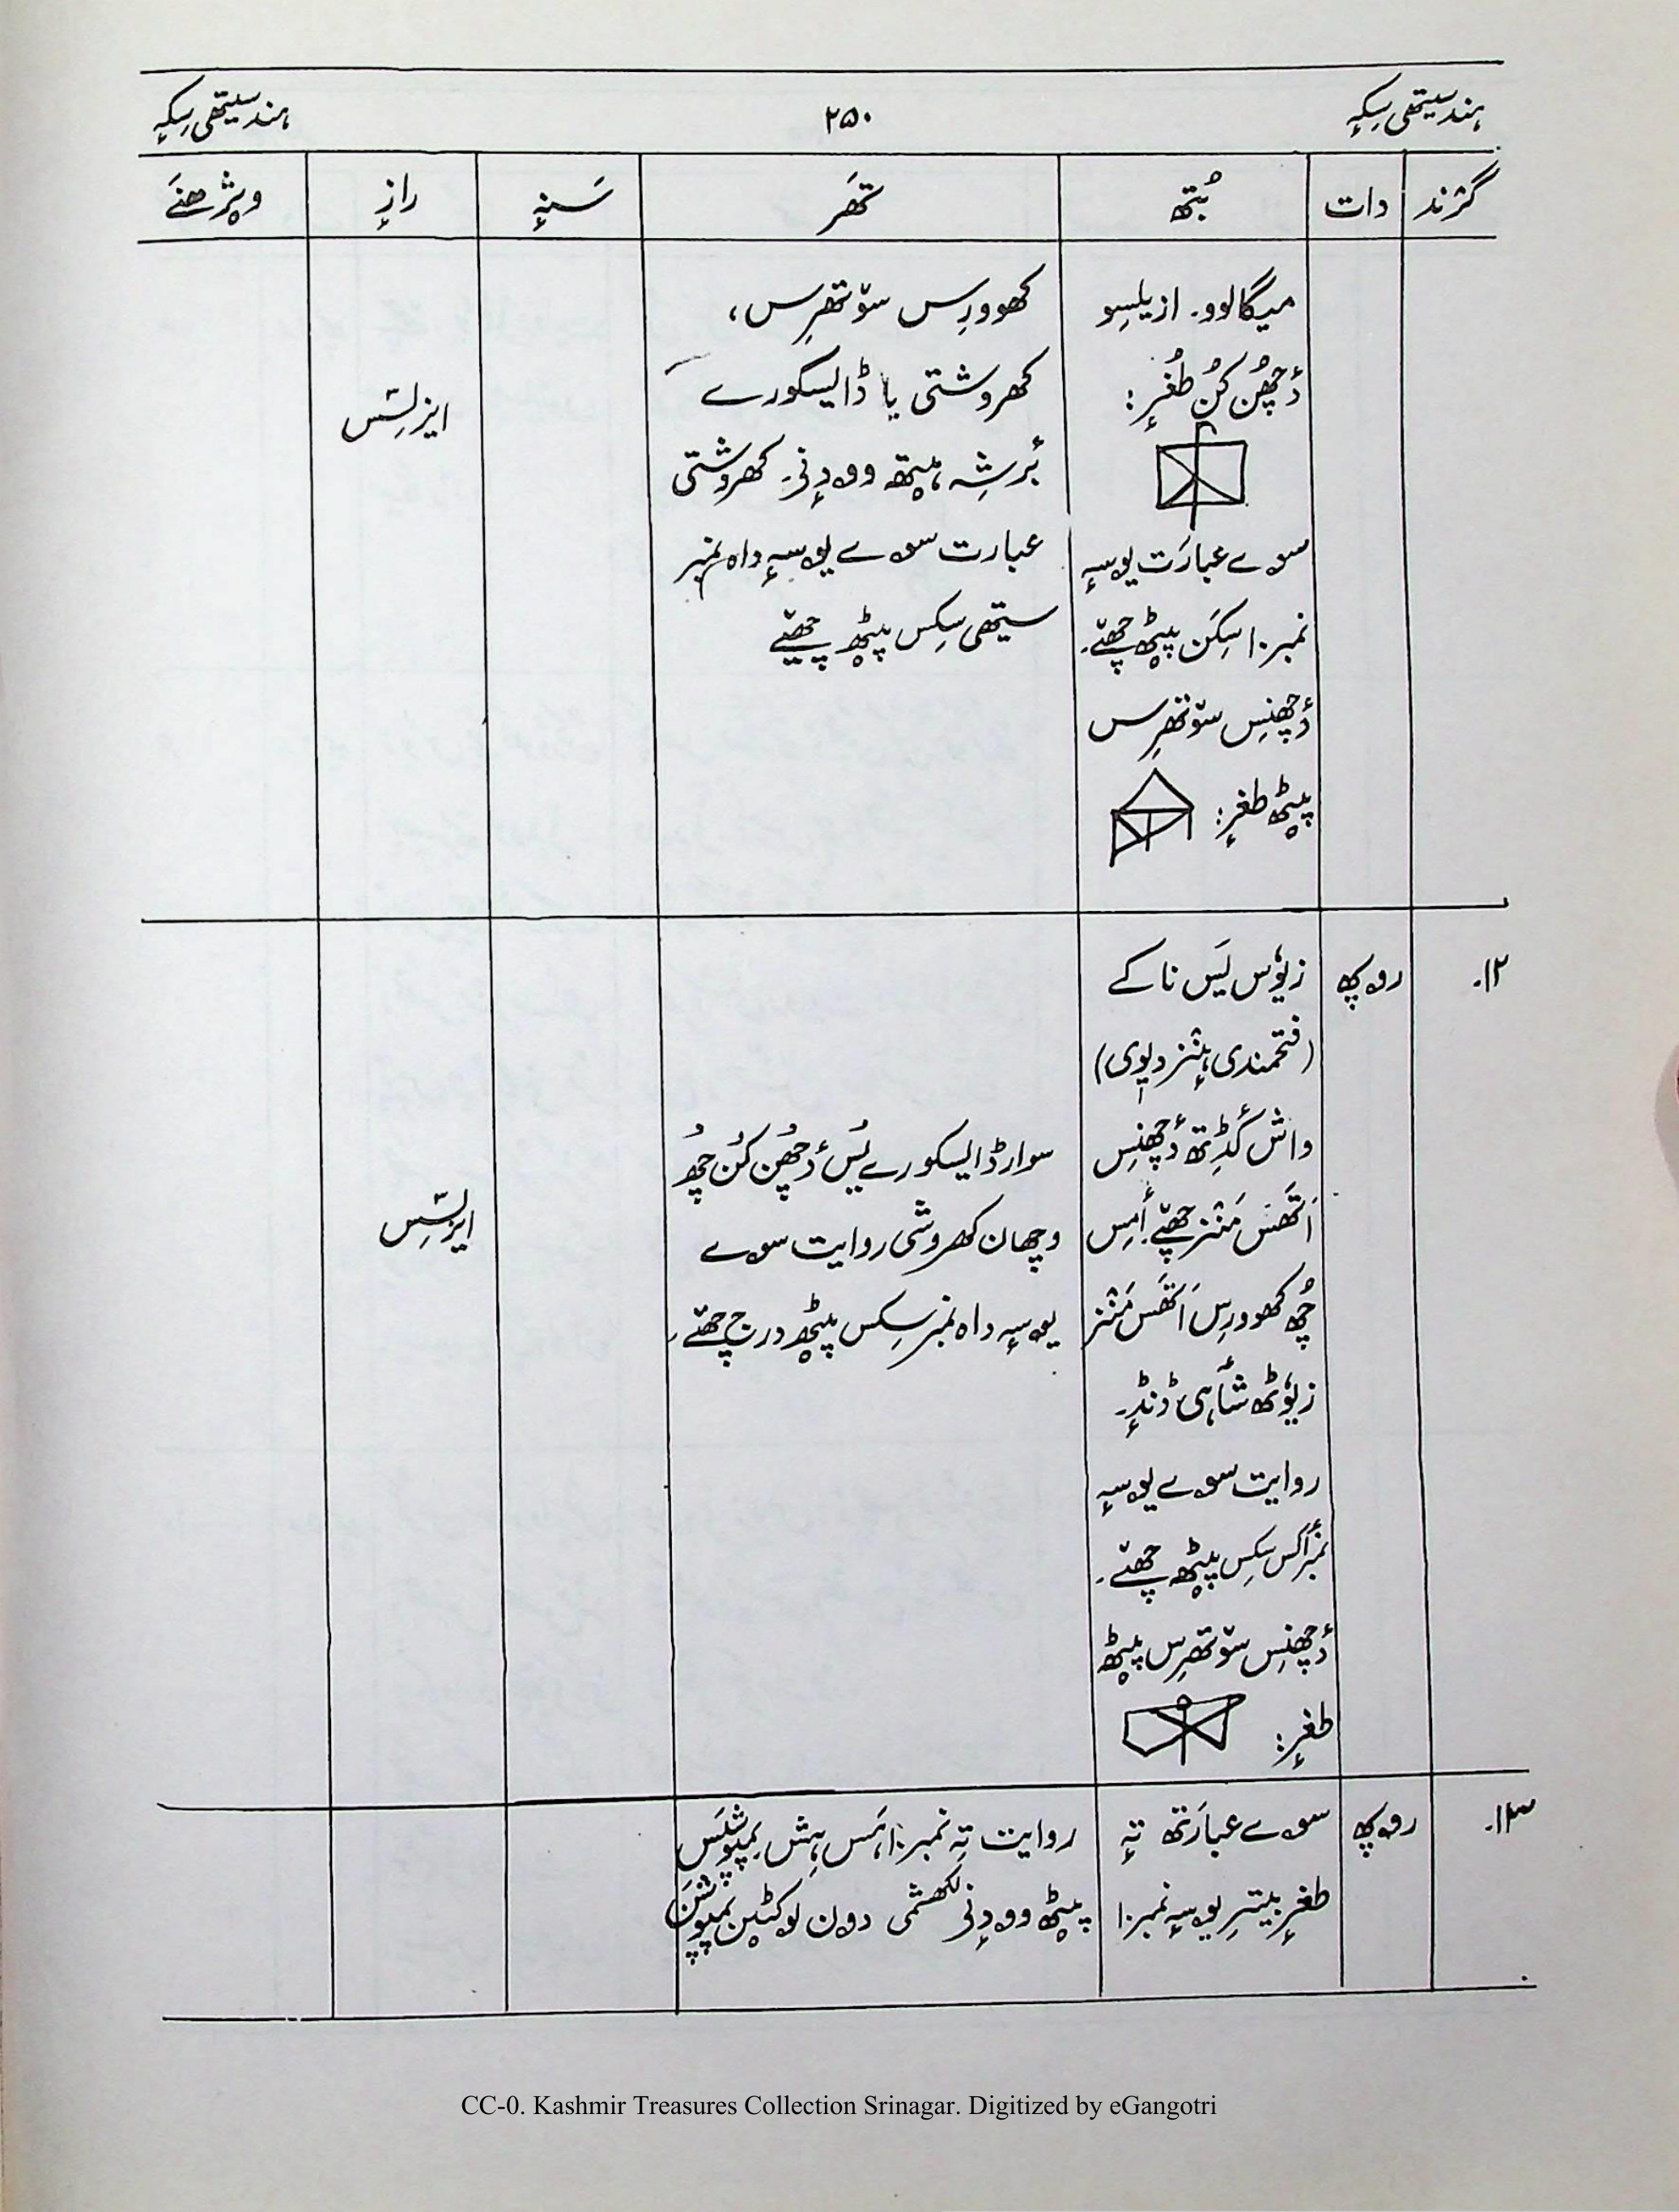 ہند سیتھی سِکہٕ
۲۵۰
ہند سیتھی سِکہٕ
گرٛند دات بُتھ تھَر سَنہٕ رازٕ ویژھنَے
میگالوو۔ ازیلِسو
دٔچھُن کُن طُغرٕ:
سوے عبارَت یوسہٕ
نمبر ۱۰ سِکَن پیٹھ چھےٚ۔
دٔچھنِس ستوٚتھرِس
پیٹھ طغرٕ:
کھوورِس ستوٚتھرِس،
کھروشتی یا ڈایسکورے
بُرشہِ ہیتھ وودٕنی۔ کھروشتی
عبارت سوے یوسہٕ داہ نمبر
سیتھی سِکس پیٹھ چھےٚ
ایزلِسٚس
۱۲۔ روپھ
زیوٗس یَس ناکے
(فتحمندی ہٕنز دیوی)
واش کٔڈِتھ دٔچھنِس
اَتھَس مَنٛز چھےٚ۔ أمِس
چُھ کھوورِس اَتھَس مَنٛز
زیوٗٹھ شٲہی ڈنڈٕ۔
روایت سوے یوسہٕ
نمبر أکِس سِکس پیٹھ چھےٚ۔
دٔچھنِس ستوٚتھرِس پیٹھ
طغرٕ:
سوار ڈایسکورے یُس دٔچھُن کُن چُھ
وچھان کھروشی روایت سوے
یوسہٕ داہ نمبر سِکس پیٹھ درج چھےٚ۔
ایزلِسٚس
۱۳۔ روپھ
سوے عبارَتھ تہٕ
طغرٕ بیترِ یوسہٕ نمبر ۱۰
روایت تہٕ نمبر ۱۰ ہَس ہِش پمپوشَس
پیٹھ وودٕنی لکھشمی دون لوکٹین پمپوشَن
CC-0. Kashmir Treasures Collection Srinagar. Digitized by eGangotri